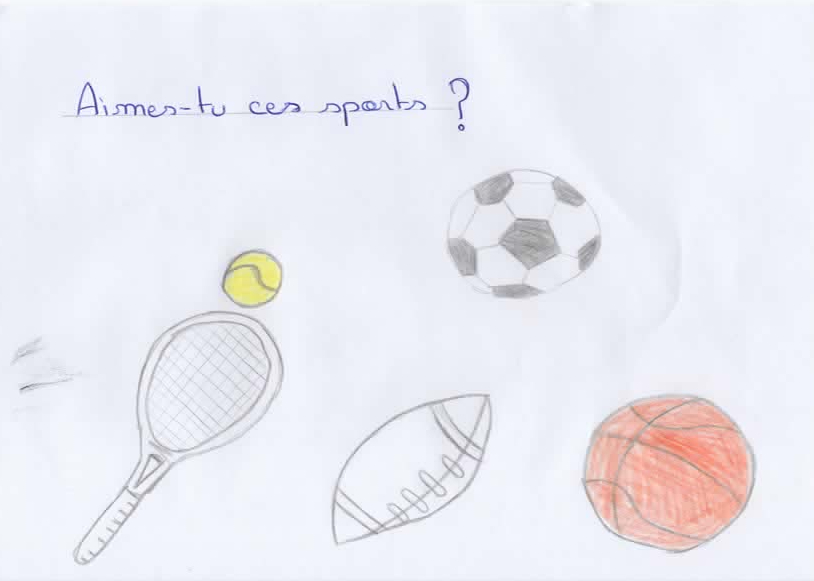 Aimes-tu ces sports ?